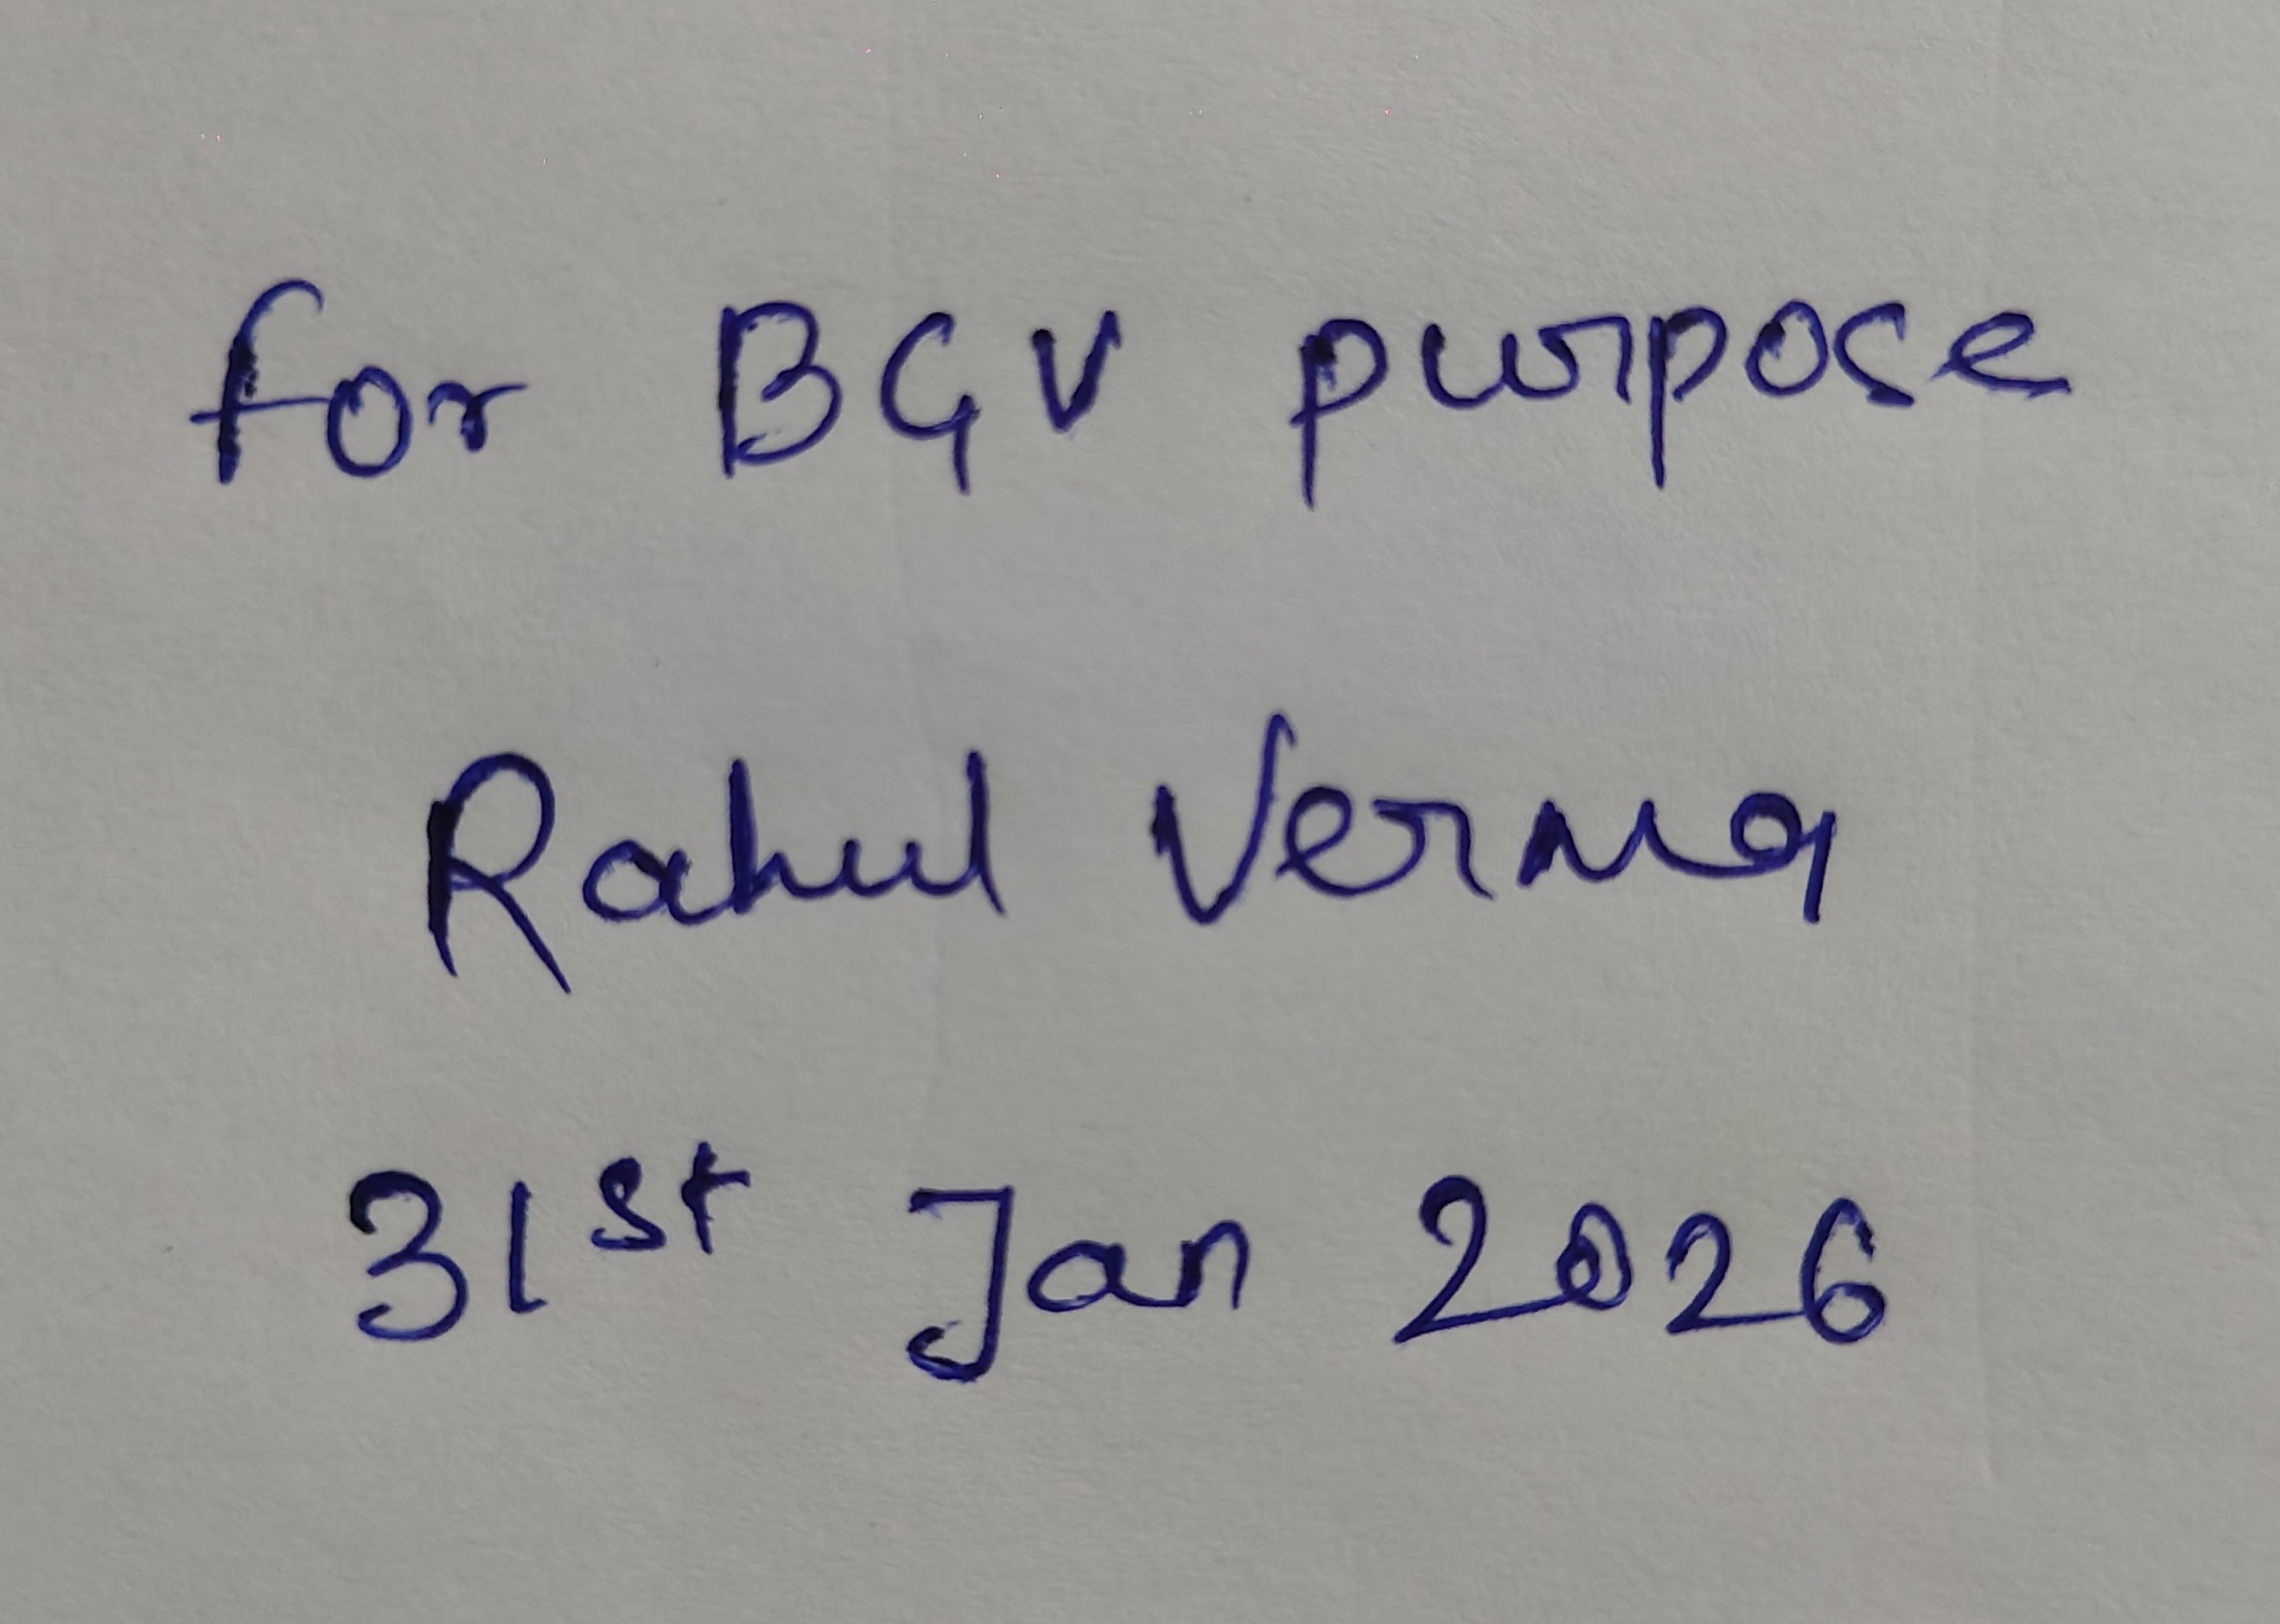 for BGV purpose
Rahul Verma
31st Jan 2026